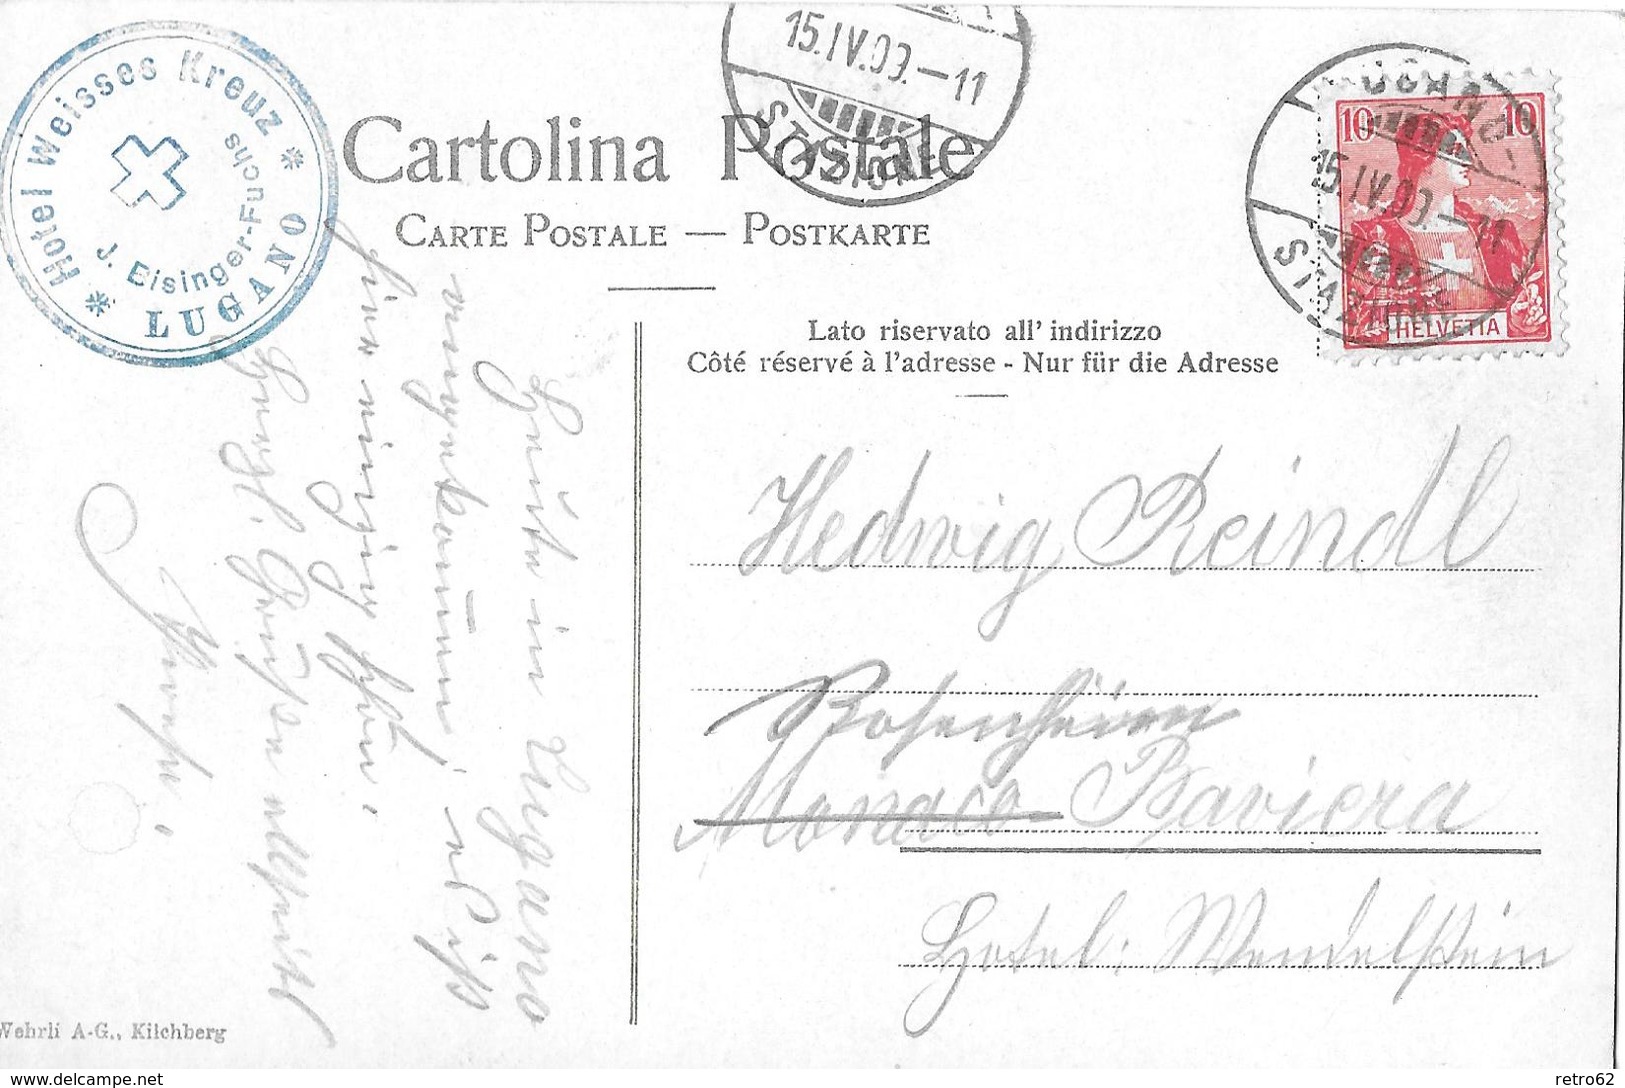 Hotel Weisses Kreuz
J. Eisinger-Fuchs
LUGANO
15.IV.09.-11
STAZIONE
Cartolina Postale
CARTE POSTALE — POSTKARTE
Lato riservato all' indirizzo
Côté réservé à l'adresse - Nur für die Adresse
LUGANO
15.IV.09.-11
STAZIONE
10 10
HELVETIA
Heute in Lugano
angekommen, es ist
hier riesig schön.
Herzl. Grüße
Hedwig Reindl
Rosenheim
Monaco Baviera
Hotel: Wendelstein
Wehrli A-G., Kilchberg
delcampe.net
retro62